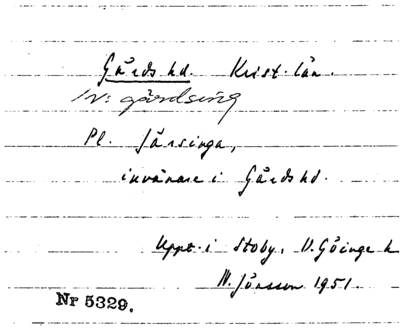 Gärds hd. Krist. län.
IN: gärdsing
Pl. Järsinga,
invånare i Gärds hd.
Uppt. i Stoby, V. Göinge h
W. Jönsson 1951.
Nr 5329.